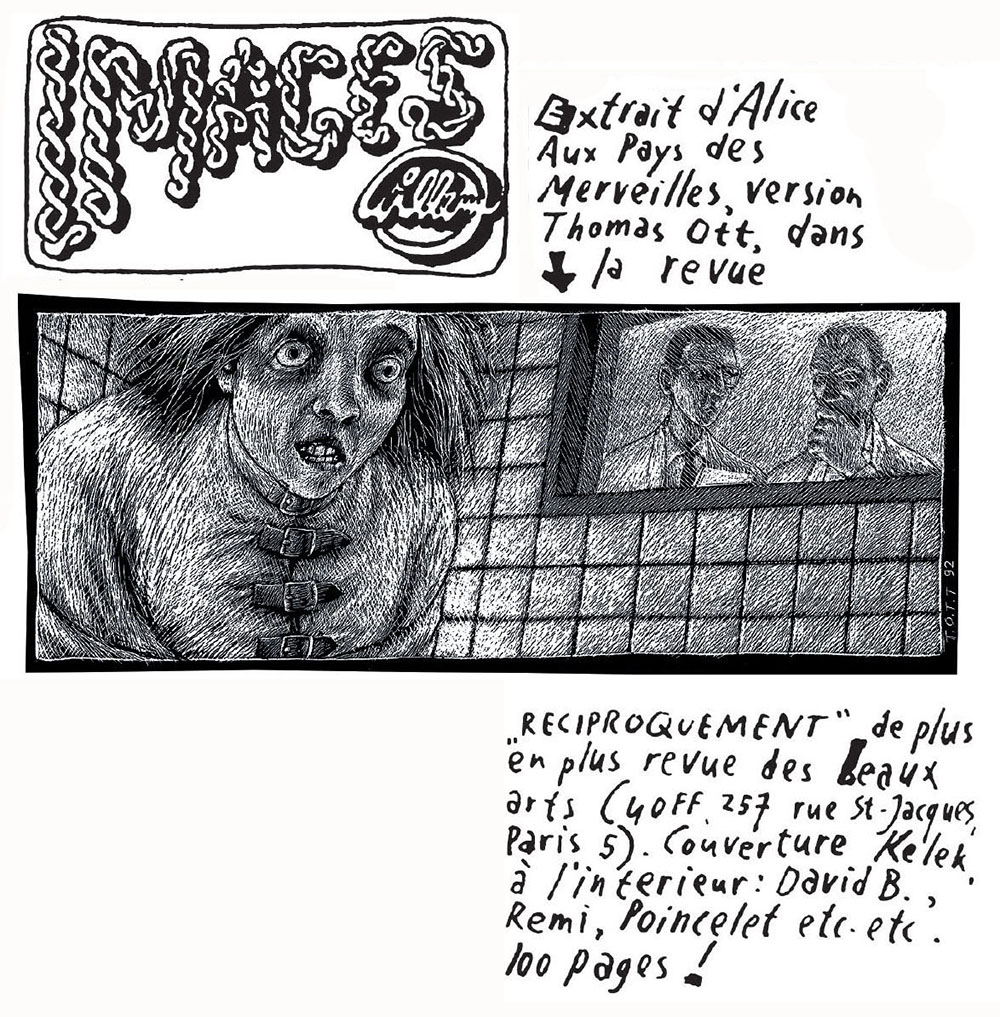 IMAGES
Willem
Extrait d'Alice
Aux Pays des
Merveilles, version
Thomas Ott, dans
la revue
T.O.T.T 92
„RECIPROQUEMENT“ de plus
en plus revue des beaux
arts (40FF. 257 rue St-Jacques,
Paris 5). Couverture Kelek,
à l'interieur: David B.,
Remi, Poincelet etc. etc.
100 pages !